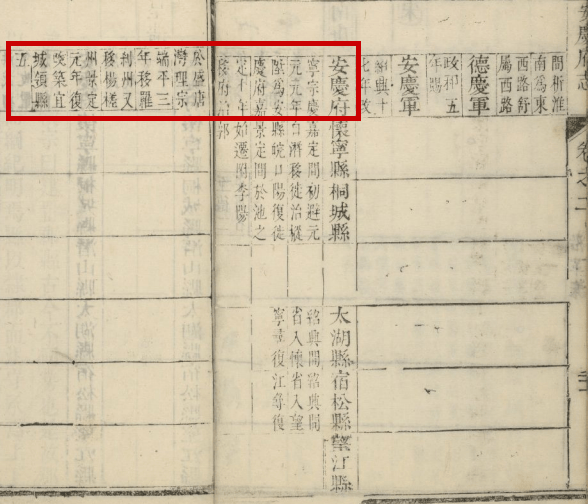 安慶府志
卷之二
間析淮
南為東
西路舒
屬西路
德慶軍
政和五
年賜
安慶軍
紹興十
七年改
安慶府
寧宗慶
元元年
陞為安
慶府嘉
定十年
移府治
於盛塘
灣理宗
端平三
年移羅
刹州又
移楊槎
州景定
元年復
改築宜
城領縣
五
懷寧縣
嘉定間
自潛移
縣皖口
景定間
始遷附
郭
桐城縣
初避元
徙治樅
陽復徙
於池之
李陽
太湖縣
宿松縣
紹興間
省入懷
寧尋復
望江縣
紹興間
省入望
江尋復